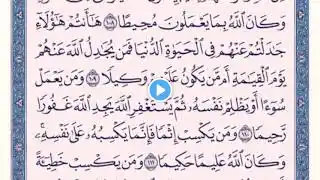 وَكَانَ ٱللَّهُ بِمَا يَعْمَلُونَ مُحِيطًا ١٠٨ هَٰٓأَنتُمْ هَٰٓؤُلَآءِ
جَٰدَلْتُمْ عَنْهُمْ فِي ٱلْحَيَوٰةِ ٱلدُّنْيَا فَمَن يُجَٰدِلُ ٱللَّهَ عَنْهُمْ
يَوْمَ ٱلْقِيَٰمَةِ أَم مَّن يَكُونُ عَلَيْهِمْ وَكِيلًا ١٠٩ وَمَن يَعْمَلْ
سُوٓءًا أَوْ يَظْلِمْ نَفْسَهُۥ ثُمَّ يَسْتَغْفِرِ ٱللَّهَ يَجِدِ ٱللَّهَ غَفُورًا
رَّحِيمًا ١١٠ وَمَن يَكْسِبْ إِثْمًا فَإِنَّمَا يَكْسِبُهُۥ عَلَىٰ نَفْسِهِۦۚ
وَكَانَ ٱللَّهُ عَلِيمًا حَكِيمًا ١١١ وَمَن يَكْسِبْ خَطِيٓـَٔةً